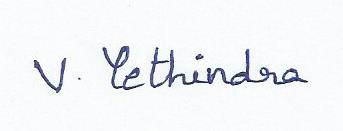 V. Yethindra